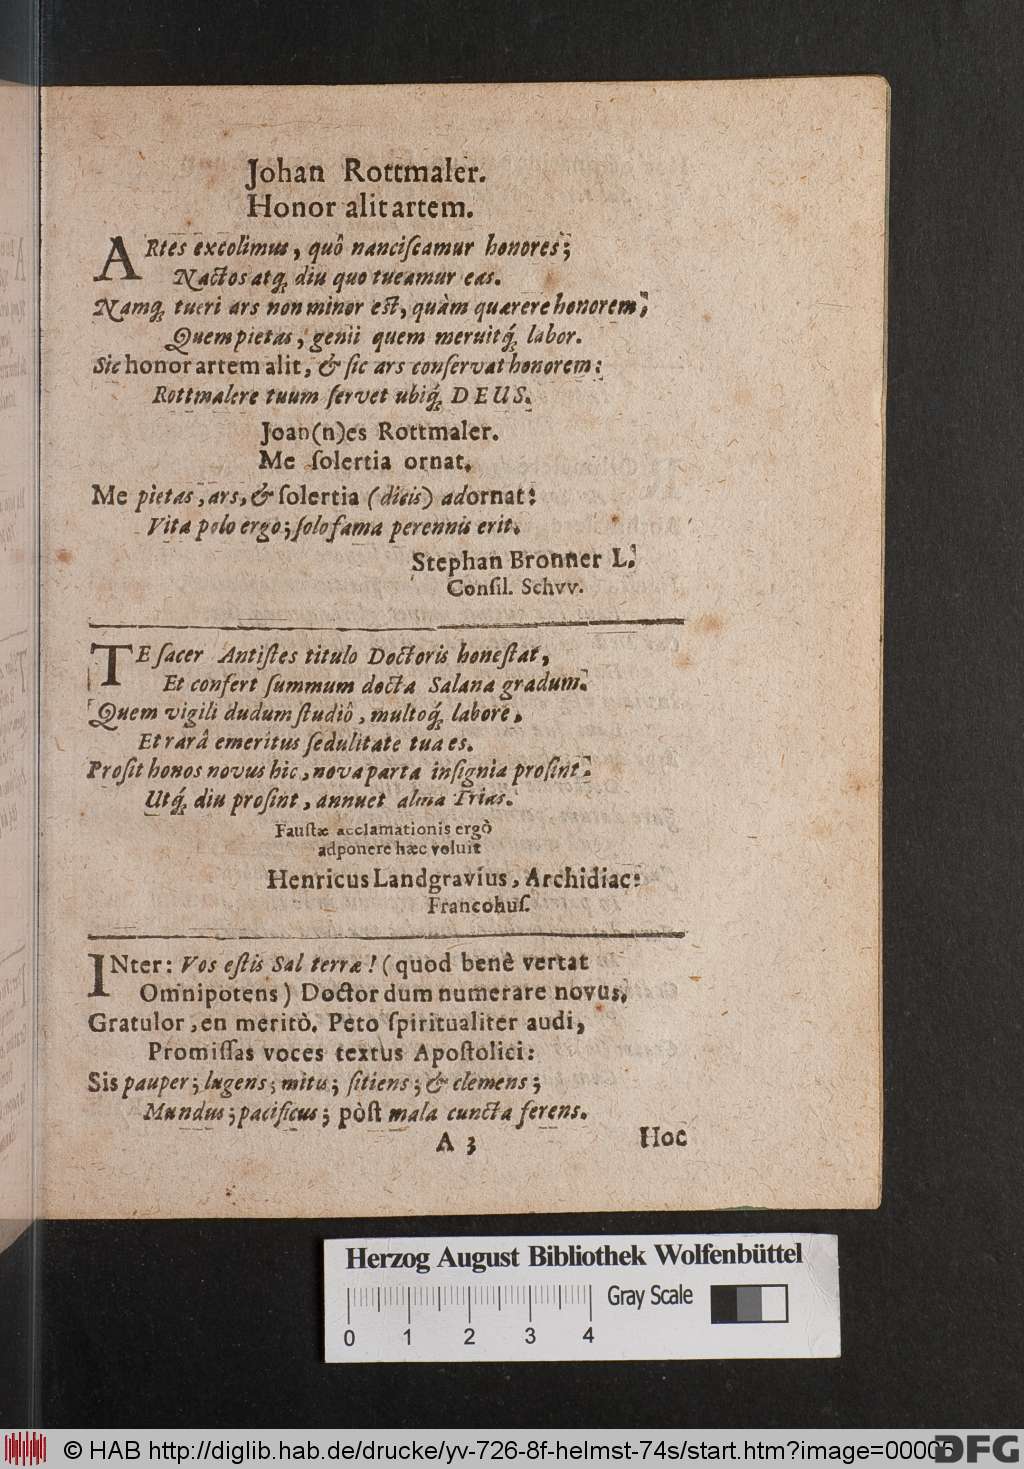 Johan Rottmaler.
Honor alit artem.
ARtes excolimus, quô nanciſcamur honores;
Nactos atq; diu quo tueamur eas.
Namq; tueri ars non minor est, quàm quærere honorem,
Quem pietas, genii quem meruitq́; labor.
Sic honor artem alit, & ſic ars conſervat honorem:
Rottmalere tuum ſervet ubiq́; DEUS.
Joan(n)es Rottmaler.
Me ſolertia ornat.
Me pietas, ars, & ſolertia (dicis) adornat:
Vita polo ergo; ſolo fama perennis erit.
Stephan Bronner L.
Conſil. Schvv.
TE ſacer Antiſtes titulo Doctoris honeſtat,
Et confert ſummum docta Salana gradum.
Quem vigili dudum ſtudiô, multoq́; labore,
Et rarâ emeritus ſedulitate tua es.
Proſit honos novus hic, nova parta inſignia proſint.
Utq́; diu proſint, annuet alma Trias.
Fauſtæ acclamationis ergò
adponere hæc voluit
Henricus Landgravius, Archidiac:
Francohuſ.
INter: Vos eſtis Sal terræ! (quod benè vertat
Omnipotens) Doctor dum numerare novus,
Gratulor, en meritò. Peto ſpiritualiter audi,
Promiſſas voces textus Apoſtolici:
Sis pauper; lugens; mitis; ſitiens; & clemens;
Mundus; pacificus; pòſt mala cuncta ferens.
A 3
Hoc
Herzog August Bibliothek Wolfenbüttel
Gray Scale
0 1 2 3 4
© HAB http://diglib.hab.de/drucke/yv-726-8f-helmst-74s/start.htm?image=00005
DFG